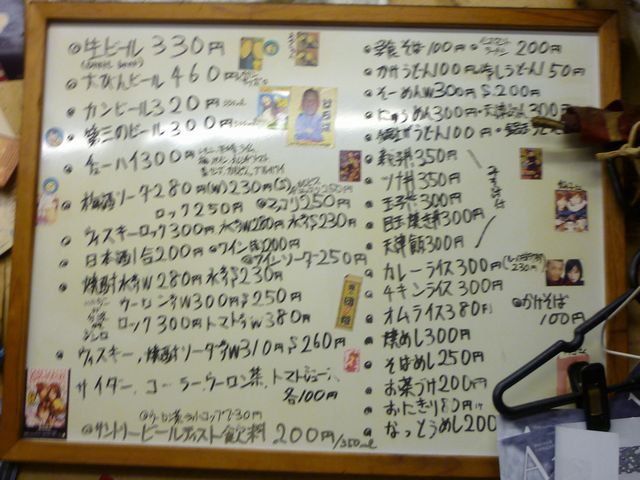 生ビール 330円
大びんビール 460円
カンビール 320円
第三のビール 300円
チューハイ 300円
梅酒ソーダ 280円(W) 230円(S)
ロック 250円
ウィスキーロック 300円 水わりW280円 水わりS230円
日本酒1合 200円 ワイン 200円
ワインソーダ 250円
焼酎水わりW 280円 水わりS 230円
ウーロンわりW 300円 S 250円
ロック 300円 トマトわりW 380円
ウィスキー、焼酎ソーダわりW 310円 S 260円
サイダー、コーラ、ウーロン茶、トマトジュース、
各100円
サントリービールテイスト飲料 200円/350ml
そば 100円 200円
かけうどん 100円 冷しうどん 150円
そーめんW 300円 S 200円
にゅうめん 300円 天津めん 300円
うどん 100円
350円
ツナ丼 350円
玉子丼 300円
目玉焼き丼 300円
天津飯 300円
カレーライス 300円
230円
チキンライス 300円
かけそば
100円
オムライス 380円
焼めし 300円
そばめし 250円
お茶づけ 200円
おにぎり 80円
なっとうめし 200